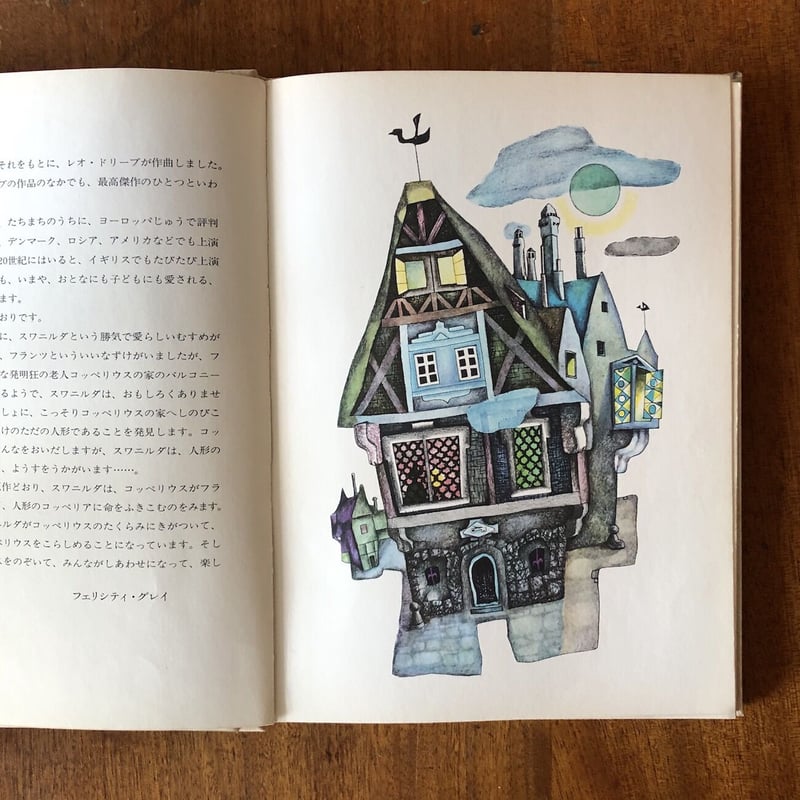 それをもとに、レオ・ドリーブが作曲しました。
ブの作品のなかでも、最高傑作のひとつといわ
、たちまちのうちに、ヨーロッパじゅうで評判
、デンマーク、ロシア、アメリカなどでも上演
20世紀にはいると、イギリスでもたびたび上演
も、いまや、おとなにも子どもにも愛される、
ます。
おりです。
に、スワニルダという勝気で愛らしいむすめが
、フランツといういいなずけがいましたが、フ
な発明狂の老人コッペリウスの家のバルコニー
るようで、スワニルダは、おもしろくありませ
しょに、こっそりコッペリウスの家へしのびこ
けのただの人形であることを発見します。コッ
んなをおいだしますが、スワニルダは、人形の
、ようすをうかがいます……。
作どおり、スワニルダは、コッペリウスがフラ
、人形のコッペリアに命をふきこむのをみます。
ルダがコッペリウスのたくらみにきがついて、
ペリウスをこらしめることになっています。そし
スをのぞいて、みんながしあわせになって、楽し
フェリシティ・グレイ